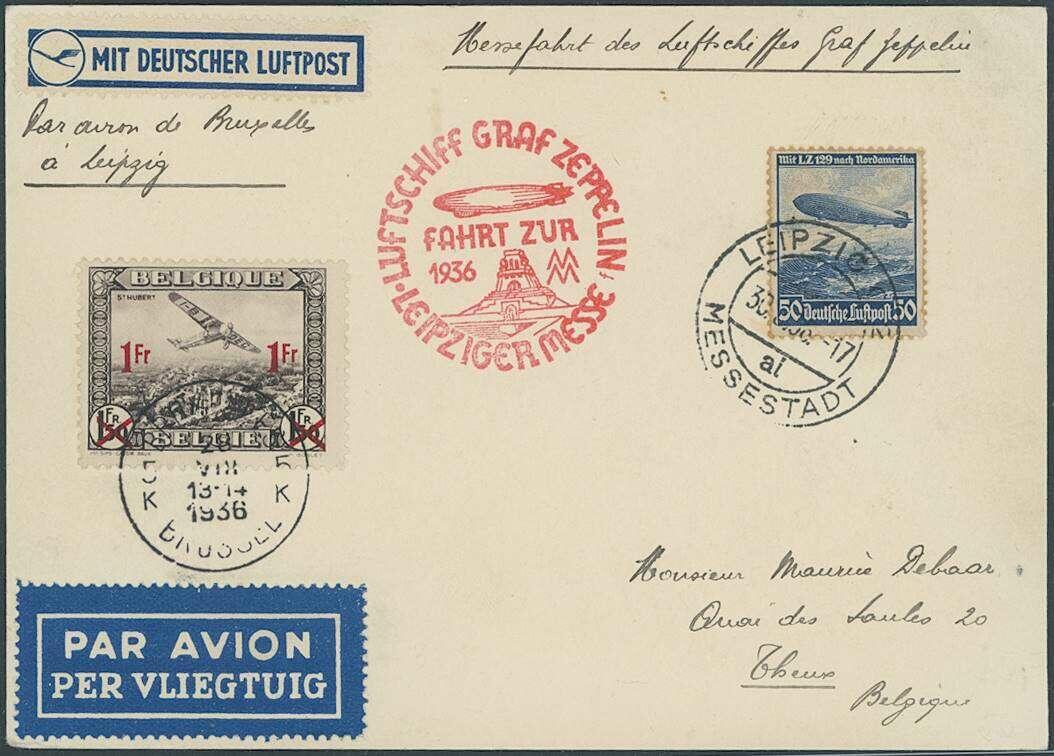 MIT DEUTSCHER LUFTPOST
Messefahrt des Luftschiffes Graf Zeppelin
Par avion de Bruxelles
à Leipzig
LUFTSCHIFF GRAF ZEPPELIN
FAHRT ZUR
1936 MM
LEIPZIGER MESSE f
Mit LZ 129 nach Nordamerika
50 Deutsche Luftpost 50
LEIPZIG
30.
17
al
MESSESTADT
BELGIQUE
ST HUBERT
1Fr 1Fr
1 FR 50 1 FR 50
BELGIE
28
VIII
13-14
1936
K K
BRUSSEL
PAR AVION
PER VLIEGTUIG
Monsieur Maurice Debaar
Quai des Saules 20
Theux
Belgique